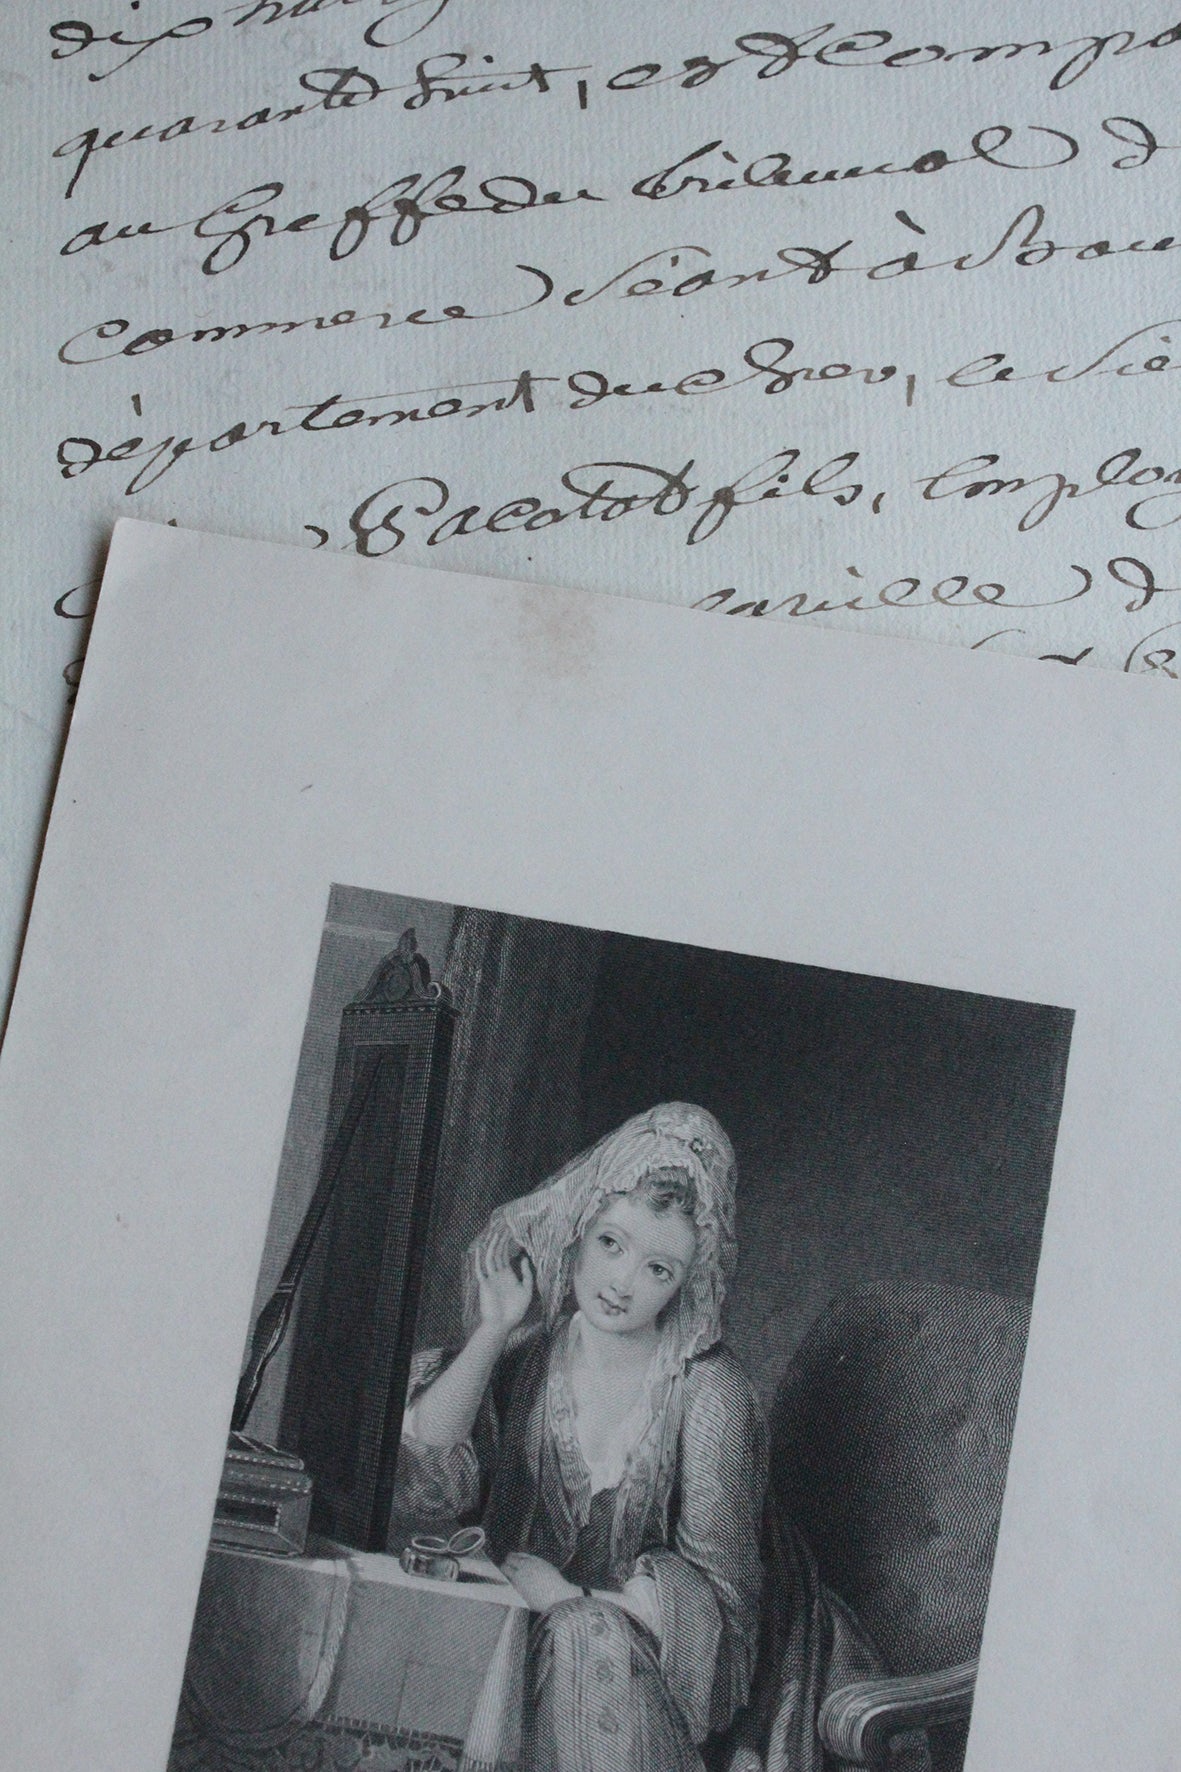 dix
quarante huit, est compa
au Greffe du Tribunal d
Commerce séant à Bou
département du Cher, le sie
Pacotat fils, Employ
d